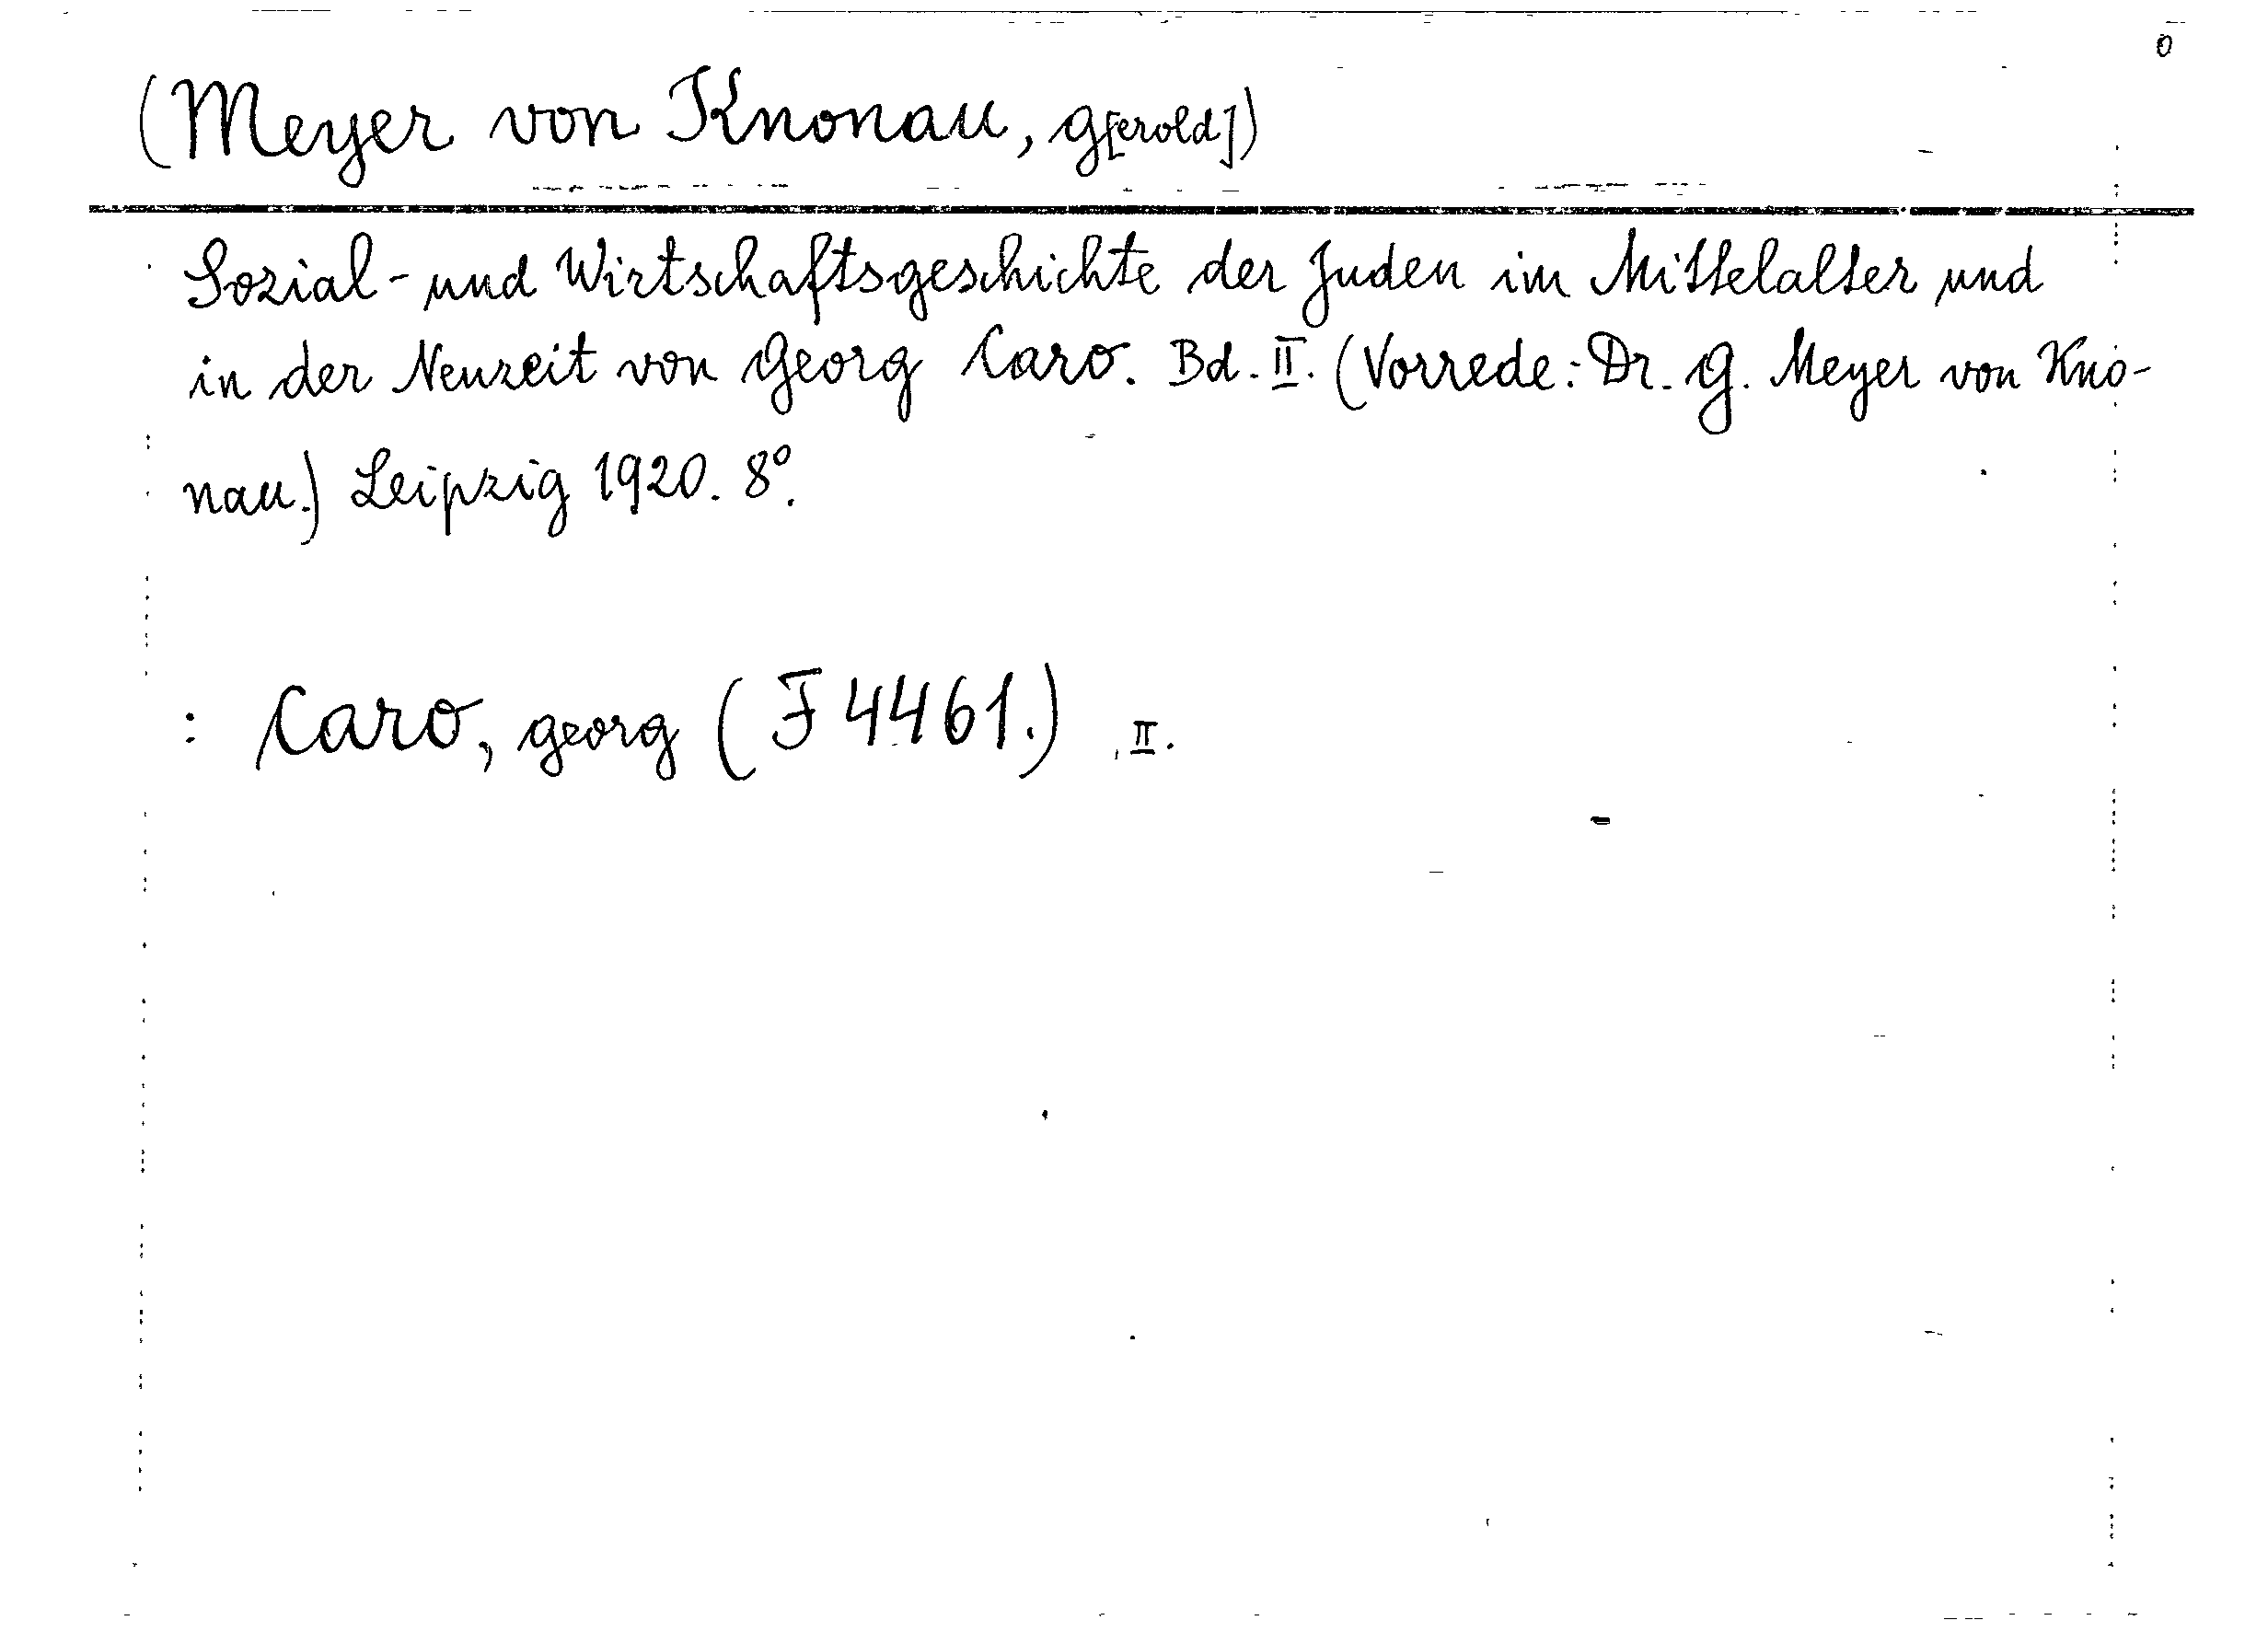 0
(Meyer von Knonau, G[erold])
Sozial- und Wirtschaftsgeschichte der Juden im Mittelalter und
in der Neuzeit von Georg Caro. Bd. II. (Vorrede: Dr. G. Meyer von Kno-
nau.) Leipzig 1920. 8°.
: Caro, Georg (F 4461.) , II.